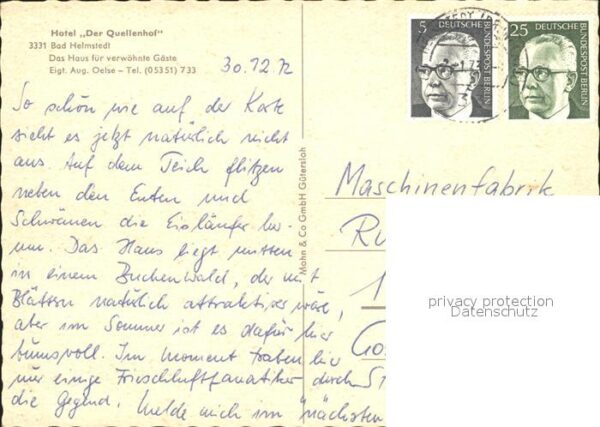 Hotel „Der Quellenhof"
3331 Bad Helmstedt
Das Haus für verwöhnte Gäste
Eigt. Aug. Oelse – Tel. (05351) 733
30.12.72
So schön wie auf der Karte
sieht es jetzt natürlich nicht
aus. Auf dem Teich flitzen
neben den Enten und
Schwänen die Eisläufer he-
rum. Das Haus liegt mitten
in einem Buchenwald, der mit
Blättern natürlich attraktiver wäre,
aber im Sommer ist es dafür hier
bumsvoll. Im Moment traben hier
nur einige Frischluftfanatiker durch
die Gegend. Melde mich im nächsten
Mohn & Co GmbH Gütersloh
5
DEUTSCHE
BUNDESPOST BERLIN
25
DEUTSCHE
BUNDESPOST BERLIN
Maschinenfabrik
Ru
1
Go
51
privacy protection
Datenschutz